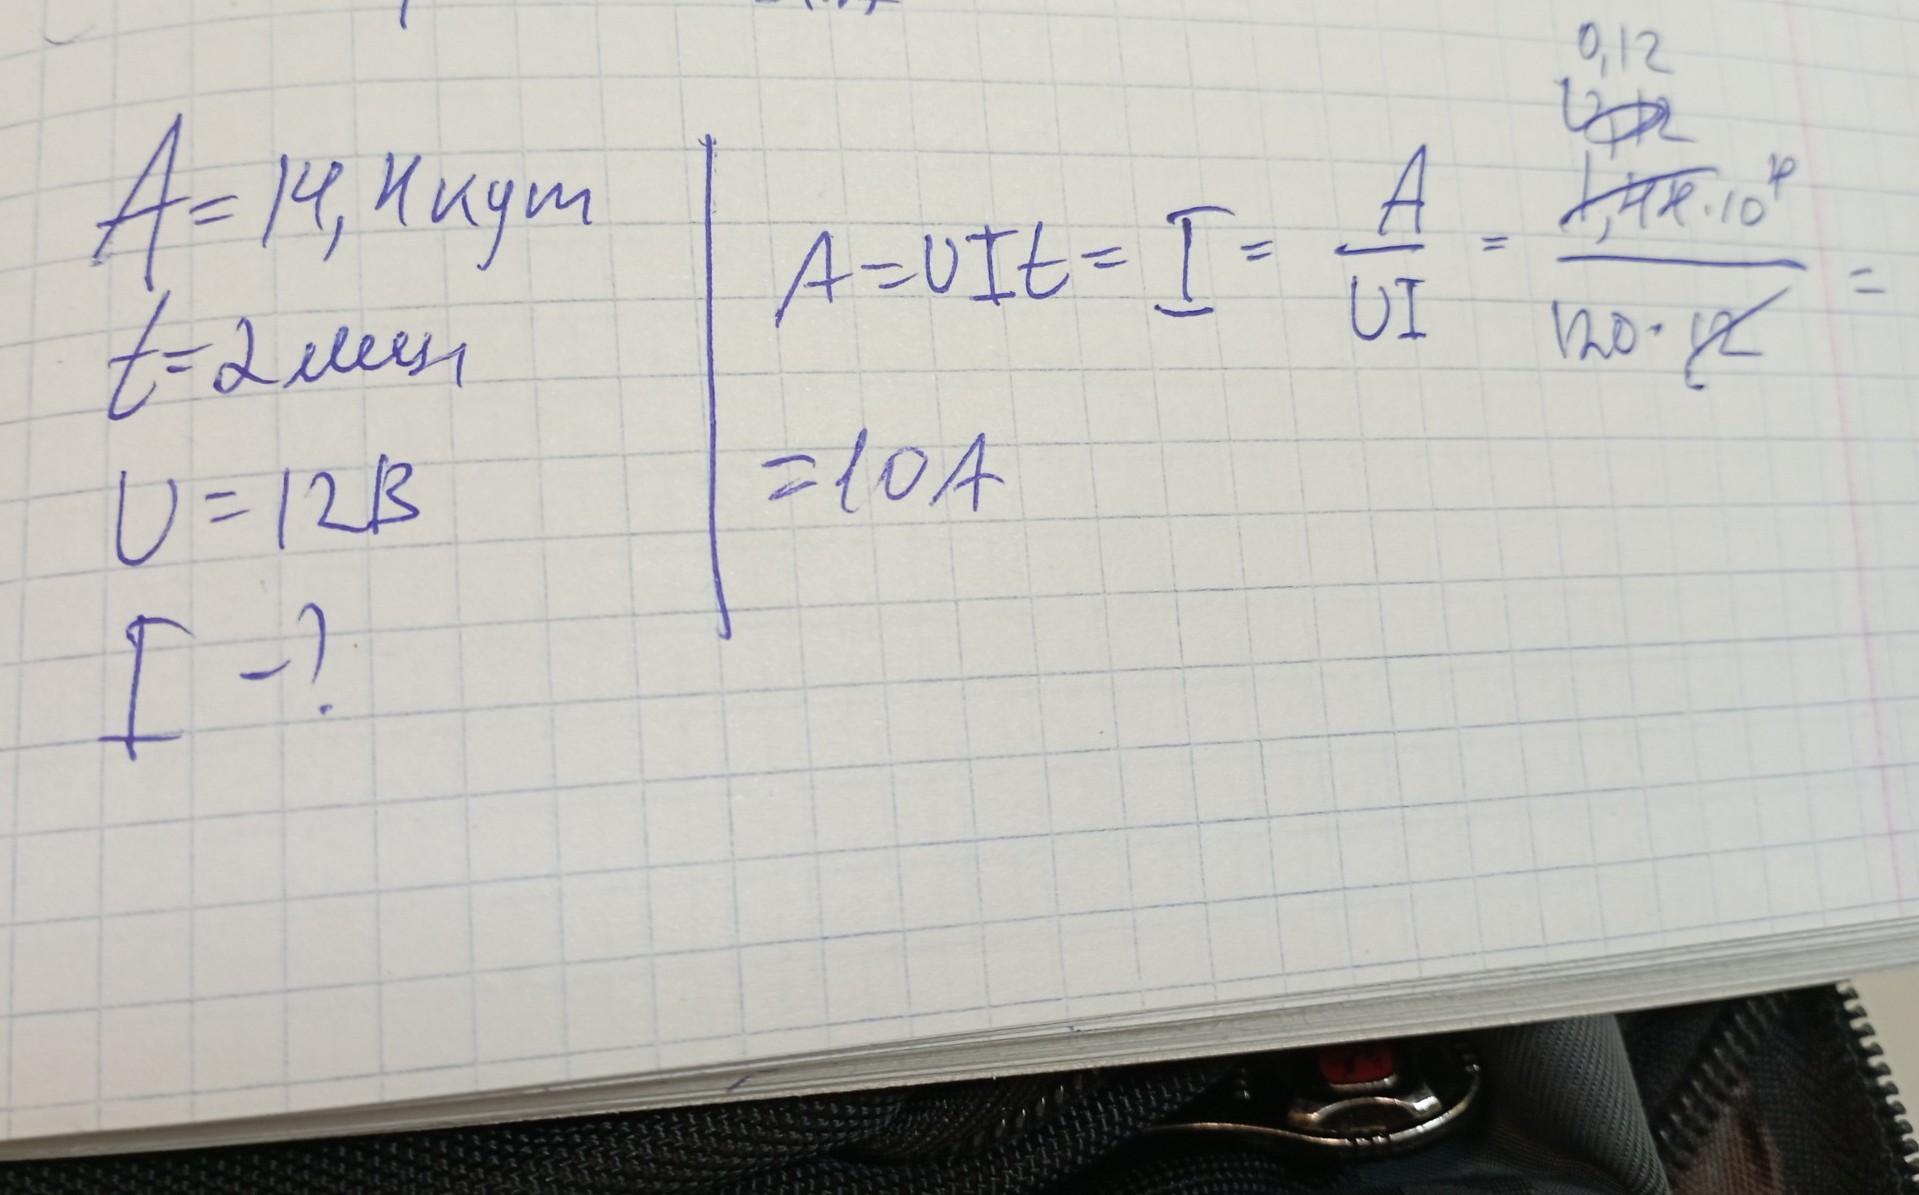 A = 14,4 кдж
t = 2 мин
U = 12В
I - ?
A = UIt = I = A / UI = 1,44 · 10⁴ / 120 · 12 =
0,12
= 10A